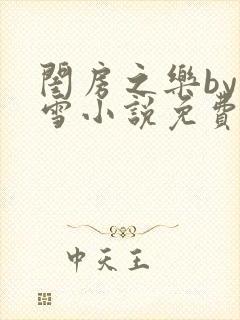 閨房之樂by
雪小說免費
中天王